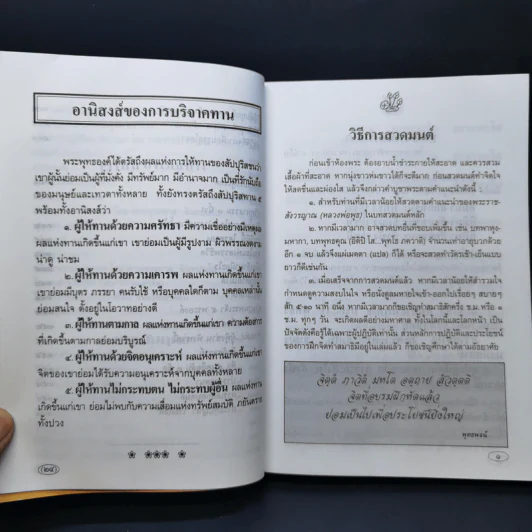 อานิสงส์ของการบริจาคทาน
พระพุทธองค์ได้ตรัสถึงผลแห่งการให้ทานของสัปบุรุษชนว่า
เขาผู้นั้นย่อมเป็นผู้ที่มั่งคั่ง มีทรัพย์มาก มีอำนาจมาก เป็นที่รักนับถือ
ของมนุษย์และเทวดาทั้งหลาย ทั้งยังทรงตรัสถึงสัปบุริสทาน ๕
พร้อมทั้งอานิสงส์ว่า
๑. ผู้ให้ทานด้วยศรัทธา มีความเชื่ออย่างมีเหตุผล
ผลแห่งทานเกิดขึ้นแก่เขา เขาย่อมเป็นผู้มีรูปงาม ผิวพรรณงดงาม
น่าดู น่าชม
๒. ผู้ให้ทานด้วยความเคารพ ผลแห่งทานเกิดขึ้นแก่เขา
เขาย่อมมีบุตร ภรรยา คนรับใช้ หรือบุคคลใดก็ตาม บุคคลเหล่านั้น
ย่อมสนใจ ตั้งอยู่ในโอวาทอย่างดี
๓. ผู้ให้ทานตามกาล ผลแห่งทานเกิดขึ้นแก่เขา ความต้องการ
ที่เกิดขึ้นตามกาลย่อมบริบูรณ์
๔. ผู้ให้ทานด้วยจิตอนุเคราะห์ ผลแห่งทานเกิดขึ้นแก่เขา
จิตของเขาย่อมได้รับความอนุเคราะห์จากบุคคลทั้งหลาย
๕. ผู้ให้ทานไม่กระทบตน ไม่กระทบผู้อื่น ผลแห่งทาน
เกิดขึ้นแก่เขา ย่อมไม่พบกับความเสื่อมแห่งทรัพย์สมบัติ ภยันตราย
ทั้งปวง
(๒๔)
วิธีการสวดมนต์
ก่อนเข้าห้องพระ ต้องอาบน้ำชำระกายให้สะอาด และควรสวม
เสื้อผ้าที่สะอาด หากนุ่งขาวห่มขาวได้ก็จะดีมาก ก่อนสวดมนต์ทำจิตใจ
ให้สดชื่นและผ่องใส แล้วจึงกล่าวคำบูชาพระตามคำแนะนำดังนี้ :
๑. สำหรับท่านที่มีเวลาน้อยให้สวดตามคำแนะนำของพระราช-
สังวรญาณ (หลวงพ่อพุธ) ในบทสวดมนต์หลัก
๒. หากมีเวลามาก อาจสวดบทอื่นที่ชอบเพิ่มขึ้น เช่น บทพาหุง-
มหากา, บทพุทธคุณ (อิติปิ โส...พุทโธ ภควาติ) จำนวนเท่าอายุบวกด้วย
อีก ๑ จบ แล้วจึงแผ่เมตตา (แปล) ก็ได้ หรือจะสวดทำวัตรเช้า-เย็นแบบ
ยาวก็ดีเช่นกัน
๓. เมื่อเสร็จจากการสวดมนต์แล้ว หากมีเวลาน้อยให้สำรวมใจ
กำหนดดูความสงบในใจ หรือนั่งดูลมหายใจเข้า-ออกไปเรื่อยๆ สบายๆ
สัก ๕-๑๐ นาที อนึ่ง หากมีเวลามากก็ขอเชิญทำสมาธิสักครึ่ง ช.ม. หรือ ๑
ช.ม. ทุกๆ วัน จะเกิดผลดีอย่างมหาศาล ทั้งในโลกนี้และโลกหน้า เป็น
ปัจจัตตังคือรู้ได้เฉพาะผู้ปฏิบัติเท่านั้น ส่วนหลักการปฏิบัติและประโยชน์
ของการฝึกจิตทำสมาธิมีอยู่ในเล่มแล้ว ก็ขอเชิญศึกษาได้ตามอัธยาศัย
จิตฺตํ ภาวิตํ มหโต อตฺถาย สํวตฺตติ
จิตที่อบรมฝึกหัดแล้ว
ย่อมเป็นไปเพื่อประโยชน์ยิ่งใหญ่
พุทธพจน์
๑